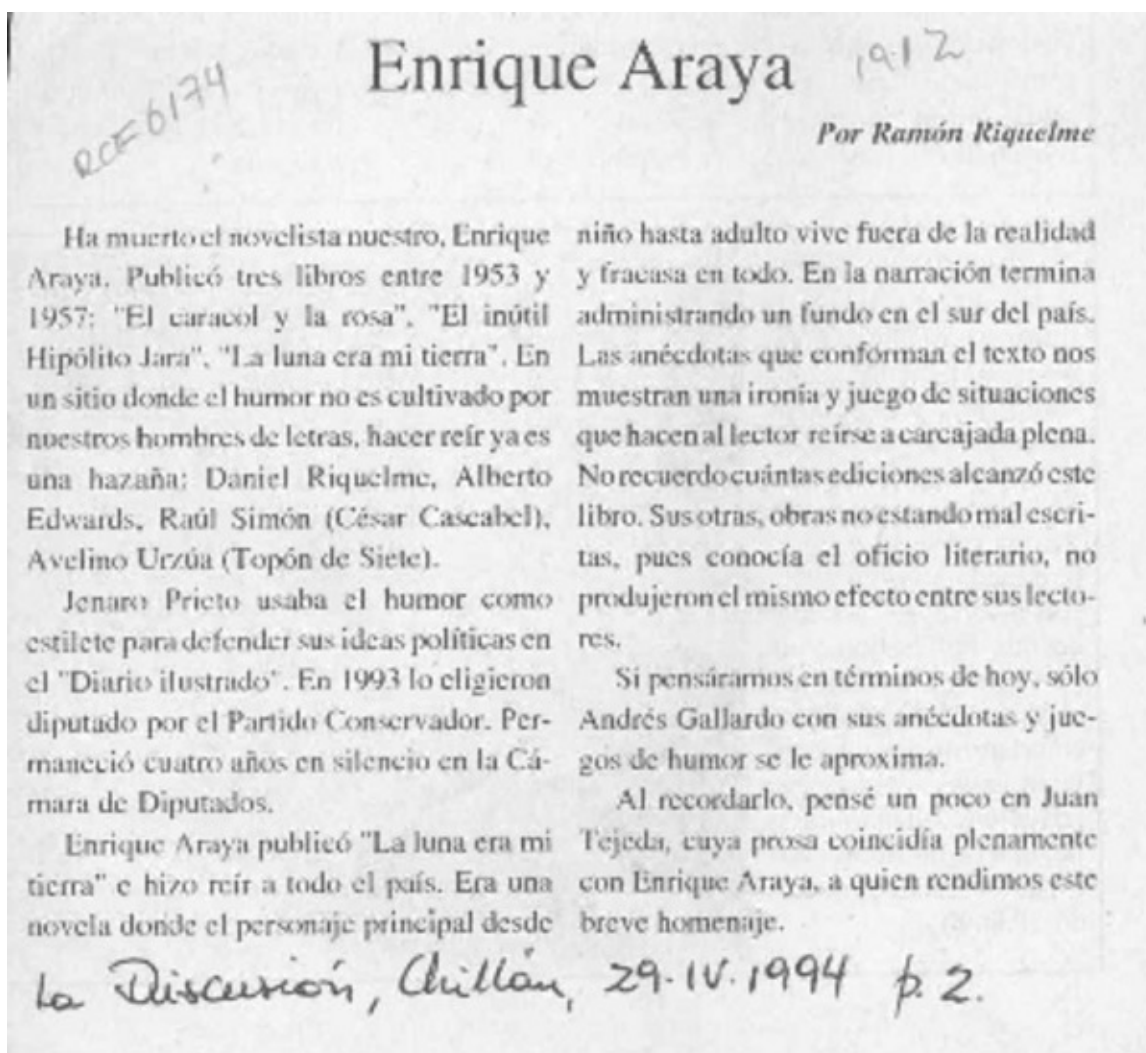 Enrique Araya
1912
RCE 6174
Por Ramón Riquelme
Ha muerto el novelista nuestro, Enrique
Araya. Publicó tres libros entre 1953 y
1957: "El caracol y la rosa", "El inútil
Hipólito Jara", "La luna era mi tierra". En
un sitio donde el humor no es cultivado por
nuestros hombres de letras, hacer reír ya es
una hazaña: Daniel Riquelme, Alberto
Edwards, Raúl Simón (César Cascabel),
Avelino Urzúa (Topón de Siete).
Jenaro Prieto usaba el humor como
estilete para defender sus ideas políticas en
el "Diario ilustrado". En 1993 lo eligieron
diputado por el Partido Conservador. Per-
maneció cuatro años en silencio en la Cá-
mara de Diputados.
Enrique Araya publicó "La luna era mi
tierra" e hizo reír a todo el país. Era una
novela donde el personaje principal desde
niño hasta adulto vive fuera de la realidad
y fracasa en todo. En la narración termina
administrando un fundo en el sur del país.
Las anécdotas que conforman el texto nos
muestran una ironía y juego de situaciones
que hacen al lector reírse a carcajada plena.
No recuerdo cuántas ediciones alcanzó este
libro. Sus otras, obras no estando mal escri-
tas, pues conocía el oficio literario, no
produjeron el mismo efecto entre sus lecto-
res.
Si pensáramos en términos de hoy, sólo
Andrés Gallardo con sus anécdotas y jue-
gos de humor se le aproxima.
Al recordarlo, pensé un poco en Juan
Tejeda, cuya prosa coincidía plenamente
con Enrique Araya, a quien rendimos este
breve homenaje.
La Discusión, Chillán, 29-IV-1994 p. 2.